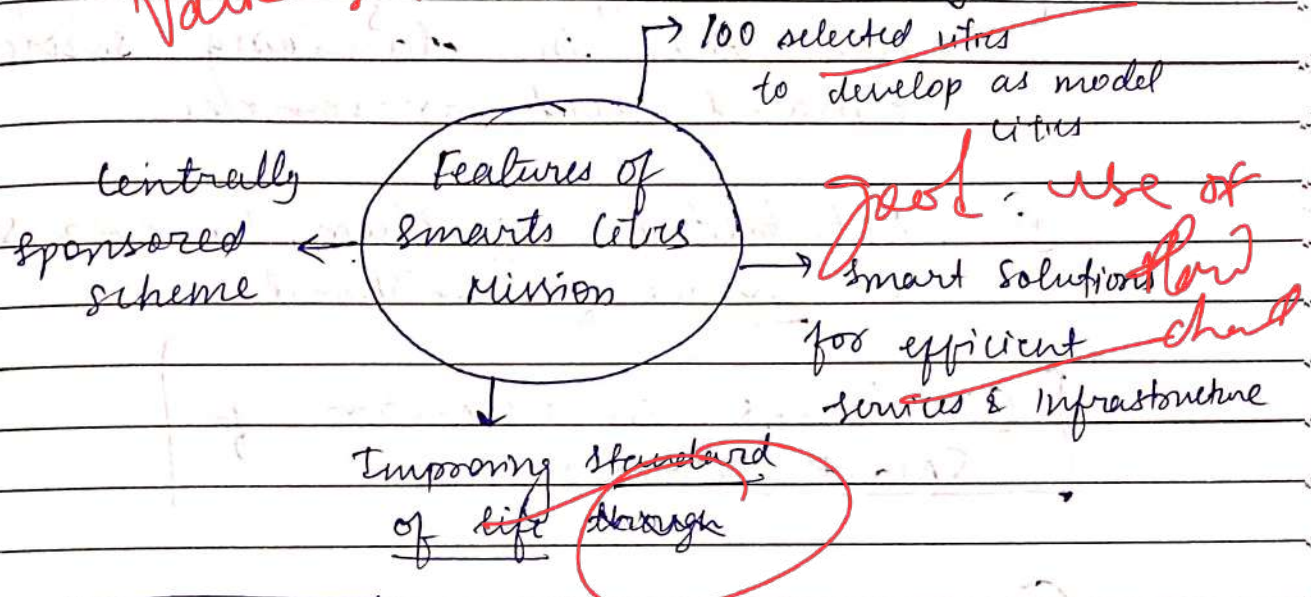 100 selected cities
to develop as model
cities
Centrally
sponsored
scheme
Features of
Smarts Cities
Mission
good : use of
flow
chart
smart solutions
for efficient
services & infrastructure
Improving standard
of life through